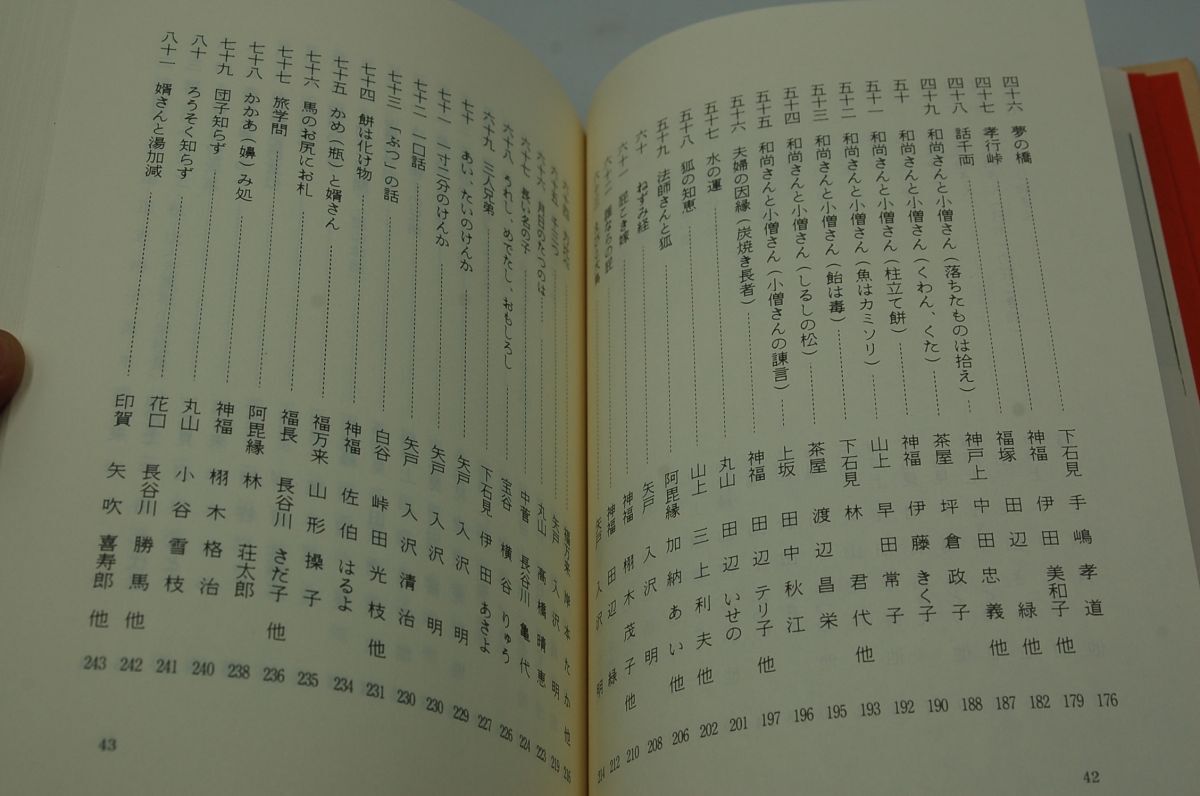 四十六 夢の橋 下石見 手嶋孝道 176
四十七 孝行峠 神福 伊田美和子 他 179
四十八 話千両 福塚 田辺緑 他 182
四十九 和尚さんと小僧さん（落ちたものは拾え） 神戸上 中田忠義 他 187
五十 和尚さんと小僧さん（くわん、くた） 茶屋 坪倉政子 188
五十一 和尚さんと小僧さん（柱立て餅） 神福 伊藤きく子 190
五十二 和尚さんと小僧さん（魚はカミソリ） 山上 早田常子 192
五十三 和尚さんと小僧さん（飴は毒） 下石見 林君代 他 193
五十四 和尚さんと小僧さん（しるしの松） 茶屋 渡辺昌栄 195
五十五 和尚さんと小僧さん（小僧さんの諌言） 上坂 田中秋江 196
五十六 夫婦の因縁（炭焼き長者） 神福 田辺テリ子 他 197
五十七 水の運 丸山 田辺いせの 201
五十八 狐の知恵 山上 三上利夫 他 202
五十九 法師さんと狐 阿毘縁 加納あい 他 206
六十 ねずみ経 矢戸 入沢明 208
六十一 屁こき嫁 神福 栩木茂子 他 210
六十二 神福 田辺緑 212
六十三 矢戸 入沢明 214
六十四 福万来 岸本たか 他 216
六十五 矢戸 入沢明 219
六十六 月日のたつのは 丸山 高橋晴恵 223
六十七 長い名の子 中菅 長谷川亀代 224
六十八 うれし、めでたし、おもしろし 宝谷 横谷りゅう 226
六十九 三人兄弟 下石見 伊田あさよ 227
七十 あい、たいのけんか 矢戸 入沢明 229
七十一 一寸二分のけんか 矢戸 入沢明 230
七十二 一口話 矢戸 入沢清治 230
七十三 「ぶつ」の話 白谷 峠田光枝 他 231
七十四 餅は化け物 神福 佐伯はるよ 234
七十五 かめ（瓶）と婿さん 福万来 山形操子 235
七十六 馬のお尻にお札 福長 長谷川さだ子 他 236
七十七 旅学問 阿毘縁 林荘太郎 238
七十八 かかあ（嬶）み処 神福 栩木格治 240
七十九 団子知らず 丸山 小谷雪枝 241
八十 ろうそく知らず 花口 長谷川勝馬 他 242
八十一 婿さんと湯加減 印賀 矢吹喜寿郎 他 243
42
43